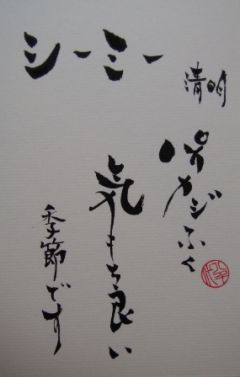 シーミー
清明
カジふく
気もち良い
季節です